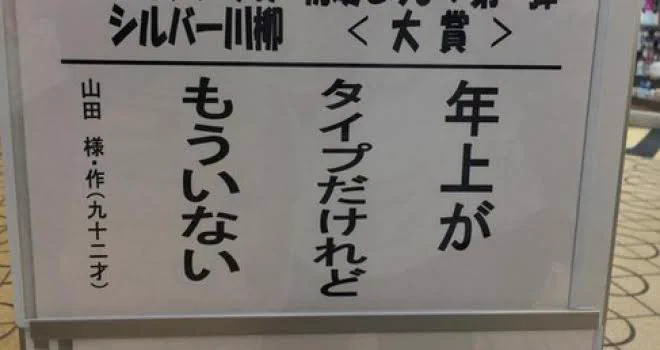 シルバー川柳 <大賞>
年上が
タイプだけれど
もういない
山田 様・作(九十二才)